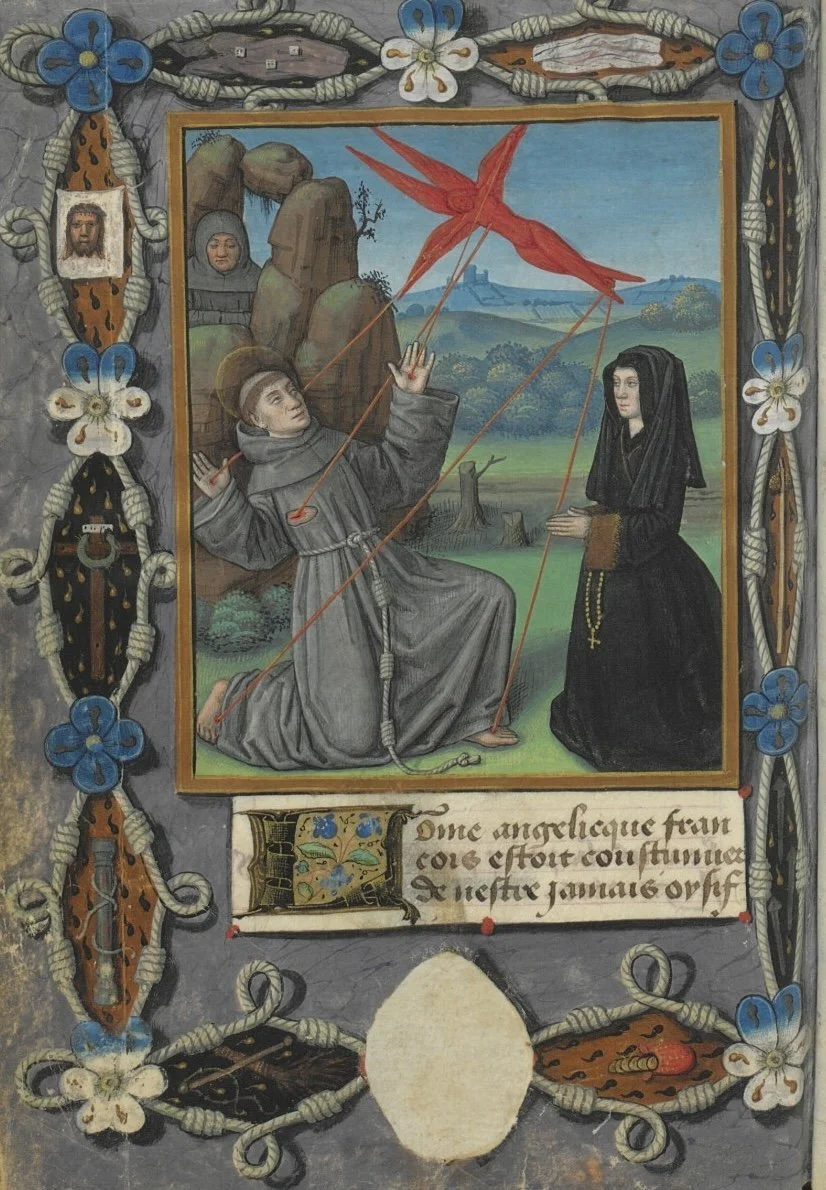 Lome angelicque fran
cois estoit coustumier
de nestre jamais oysif